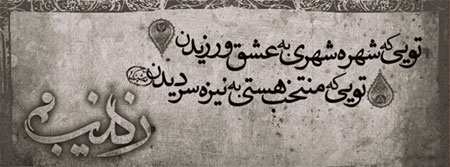 تویی که شهره شهری به عشق ورزیدن
تویی که منتخب هستی به نیزه سر دیدن
زینب